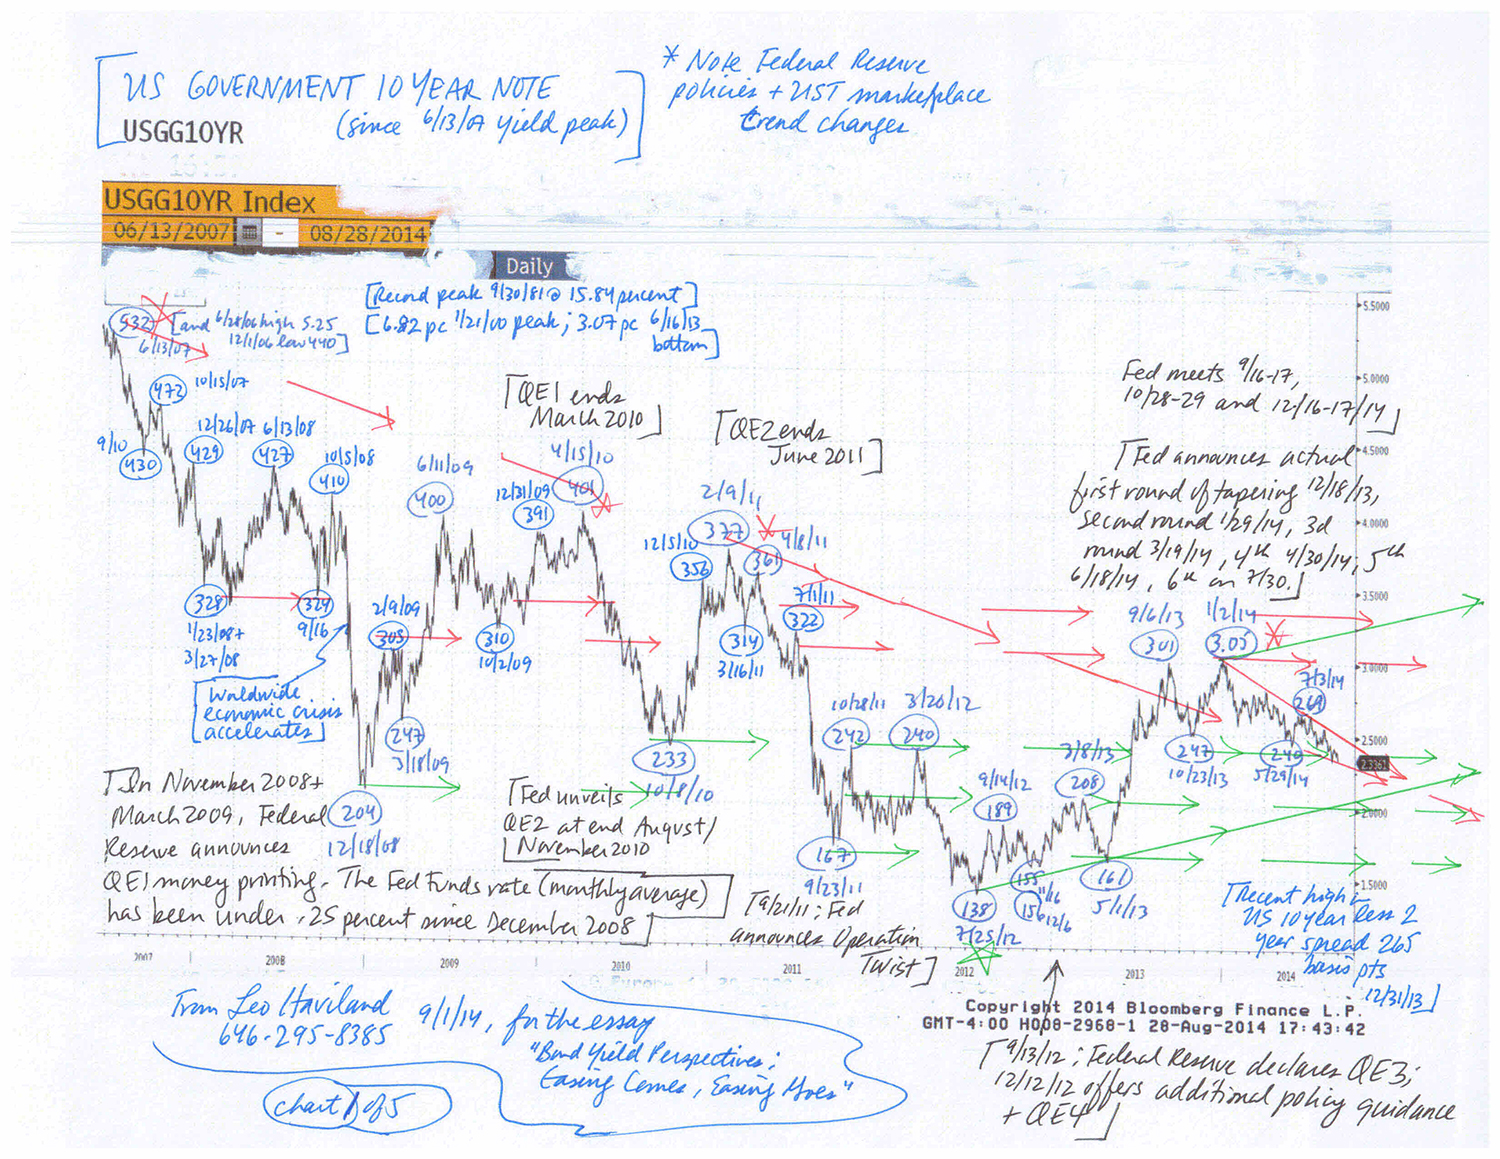 US GOVERNMENT 10 YEAR NOTE
(since 6/13/07 yield peak)
USGG10YR
* Note Federal Reserve
policies + UST marketplace
trend changes
USGG10YR Index
06/13/2007 - 08/28/2014
Daily
[Record peak 9/30/81 @ 15.84 percent]
[6.82 pc 1/21/00 peak; 3.07 pc 6/16/13
bottom]
532
6/13/07
[and 6/28/06 high 5.25
12/1/06 low 440]
472
10/15/07
9/10
430
12/26/07
429
6/13/08
427
10/5/08
410
328
1/23/08 +
3/27/08
329
9/16
[Worldwide
economic crisis
accelerates]
204
12/18/08
2/9/09
305
247
3/18/09
6/11/09
400
310
10/2/09
12/31/09
391
4/15/10
401
[QE1 ends
March 2010]
233
10/8/10
12/5/10
356
2/9/11
377
4/8/11
361
314
3/16/11
7/1/11
322
[QE2 ends
June 2011]
167
9/23/11
10/28/11
242
3/20/12
240
138
7/25/12
9/14/12
189
155
11/16
156 12/6
3/8/13
208
161
5/1/13
9/6/13
301
247
10/23/13
1/2/14
3.05
240
5/29/14
7/3/14
269
Fed meets 9/16-17,
10/28-29 and 12/16-17/14]
[Fed announces actual
first round of tapering 12/18/13,
second round 1/29/14, 3d
round 3/19/14, 4th 4/30/14, 5th
6/18/14, 6th on 7/30.]
5.5000
5.0000
4.5000
4.0000
3.5000
3.0000
2.5000
2.3361
2.0000
1.5000
[In November 2008 +
March 2009, Federal
Reserve announces
QE1 money printing. The Fed Funds rate (monthly average)
has been under .25 percent since December 2008]
[Fed unveils
QE2 at end August/
November 2010
[9/21/11; Fed
announces Operation
Twist]
[Recent high in
US 10 year less 2
year spread 265
basis pts
12/31/13]
2007
2008
2009
2010
2011
2012
2013
2014
Copyright 2014 Bloomberg Finance L.P.
GMT-4:00 H008-2968-1 28-Aug-2014 17:43:42
From Leo Haviland
646-295-8385
9/1/14, for the essay
"Bond Yield Perspectives:
Easing Comes, Easing Goes"
chart 1 of 5
[9/13/12; Federal Reserve declares QE3;
12/12/12 offers additional policy guidance
+ QE4]